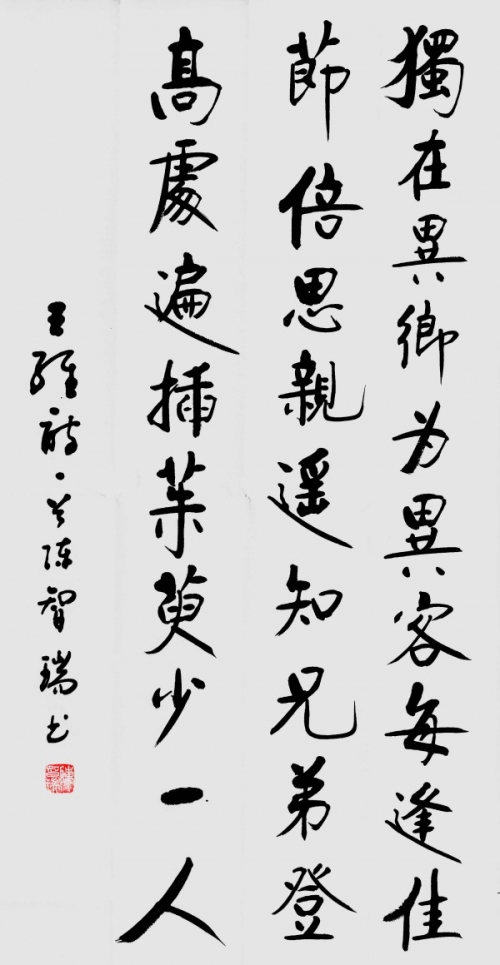 獨在異鄉为異客每逢佳
節倍思親遥知兄弟登
高處遍插茱萸少一人
王維詩一首陳智瑞书